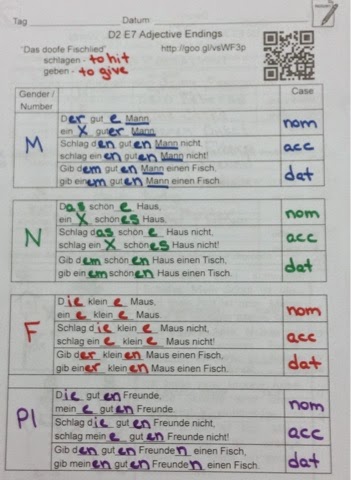 Tag Datum
D2 E7 Adjective Endings
"Das doofe Fischlied" http://goo.gl/vsWF3p
schlagen - to hit
geben - to give
Gender / Number Case
M
Der gute Mann, nom
ein X guter Mann.
Schlag den guten Mann nicht, acc
schlag einen guten Mann nicht!
Gib dem guten Mann einen Fisch, dat
gib einem guten Mann einen Fisch.
N
Das schöne Haus, nom
ein X schönes Haus.
Schlag das schöne Haus nicht, acc
schlag ein X schönes Haus nicht!
Gib dem schönen Haus einen Tisch, dat
gib einem schönen Haus einen Tisch.
F
Die kleine Maus, nom
eine kleine Maus.
Schlag die kleine Maus nicht, acc
schlag eine kleine Maus nicht!
Gib der kleinen Maus einen Fisch, dat
gib einer kleinen Maus einen Fisch.
Pl
Die guten Freunde, nom
meine guten Freunde.
Schlag die guten Freunde nicht, acc
schlag meine guten Freunde nicht!
Gib den guten Freunden einen Fisch, dat
gib meinen guten Freunden einen Fisch.